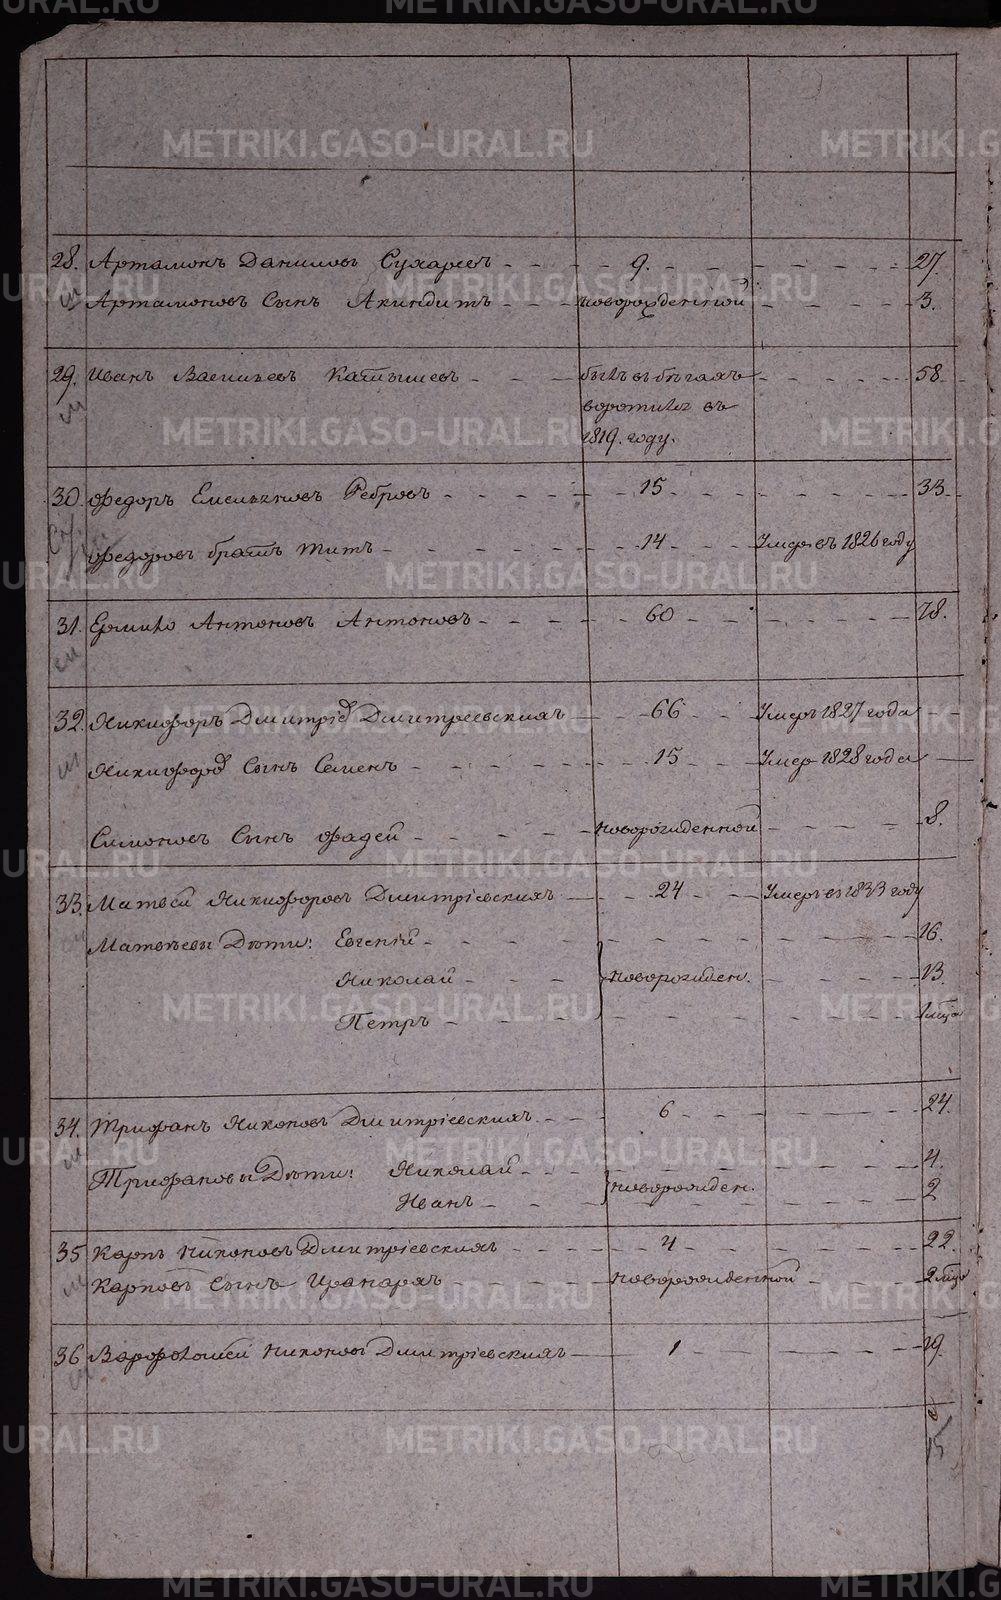 28. Артамонъ Даниловъ Сухаревъ 9. 27
Артамоновъ Сынъ Акиндитъ новорожденной 3.
29. Иванъ Васильевъ Катышевъ былъ въ бѣгахъ 58
воротился въ
1819. году.
30. Федоръ Емельяновъ Ребровъ 15 33
Федоровъ братъ Титъ 14 Умеръ въ 1826 году
31. Ермило Антоновъ Антоновъ 60 78.
32. Никифоръ Дмитріевъ Дмитреевскихъ 66 Умеръ 1827 года
Никифоровъ Сынъ Семенъ 15 Умер 1828 года
Симоновъ Сынъ Фадей новорожденной 8.
33. Матвей Никифоровъ Дмитріевскихъ 24 Умеръ въ 1833 году
Матвѣевы Дѣти: Евгеній 16.
Николай новорожден. 13.
Петръ
34. Трифанъ Никоновъ Дмитріевскихъ. 6 24.
Трифановы Дѣти: Николай 4.
Иванъ новорожден. 2
35 Карпъ Никоновъ Дмитріевскихъ 4 22.
Карповъ Сынъ новорожденной
36 Варфоломей Никоновъ Дмитріевскихъ 1 19.
15
METRIKI.GASO-URAL.RU